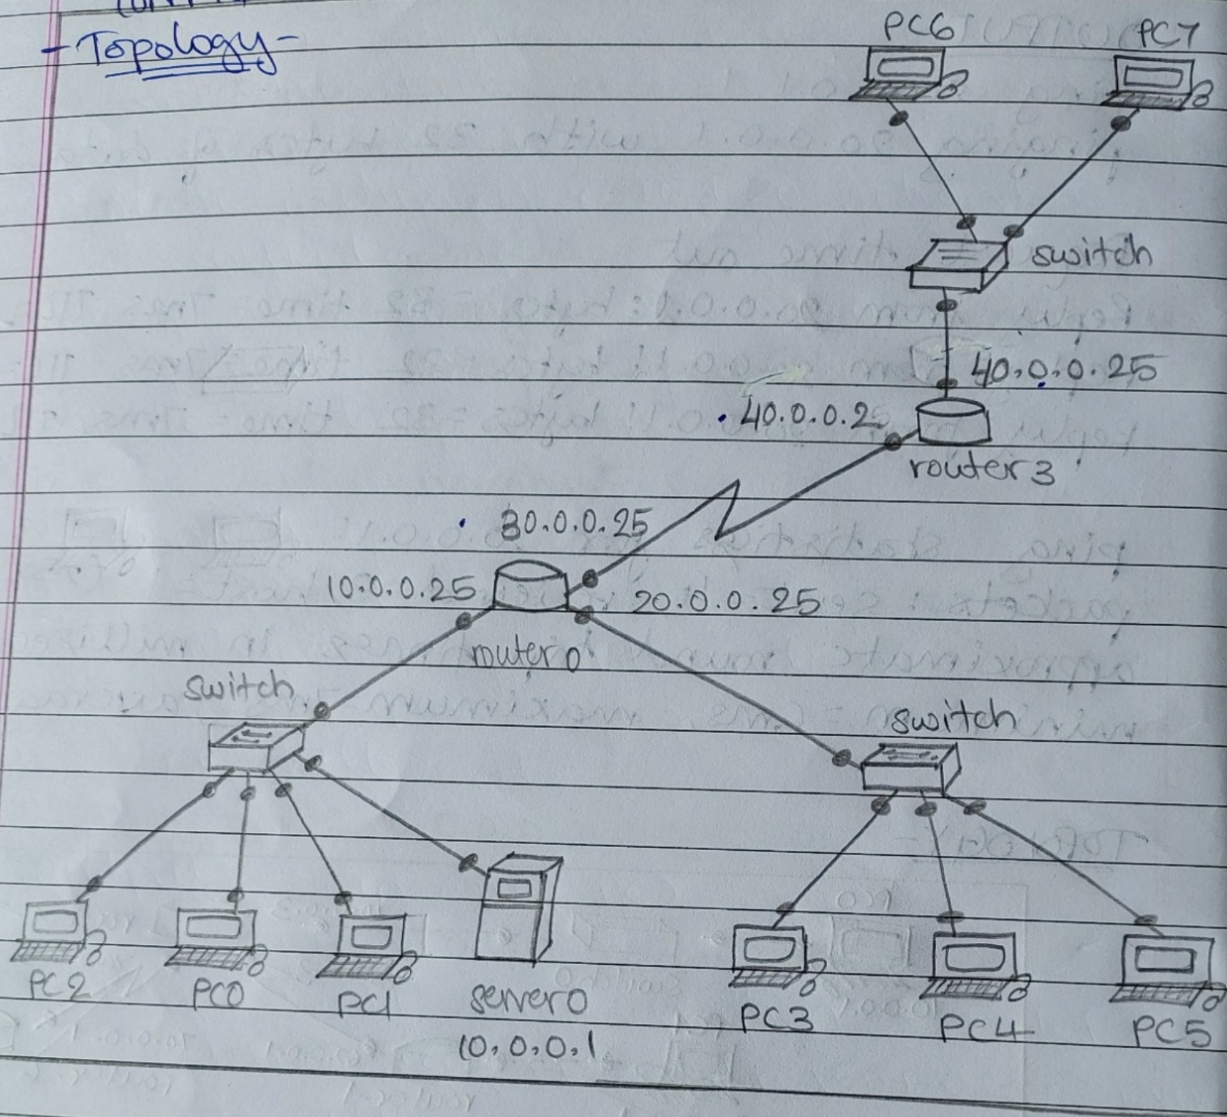 - Topology -
PC6 PC7
switch
40.0.0.25
40.0.0.25
router 3
30.0.0.25
10.0.0.25
20.0.0.25
router 0
switch
switch
PC2 PC0 PC1 server 0
10.0.0.1
PC3 PC4 PC5